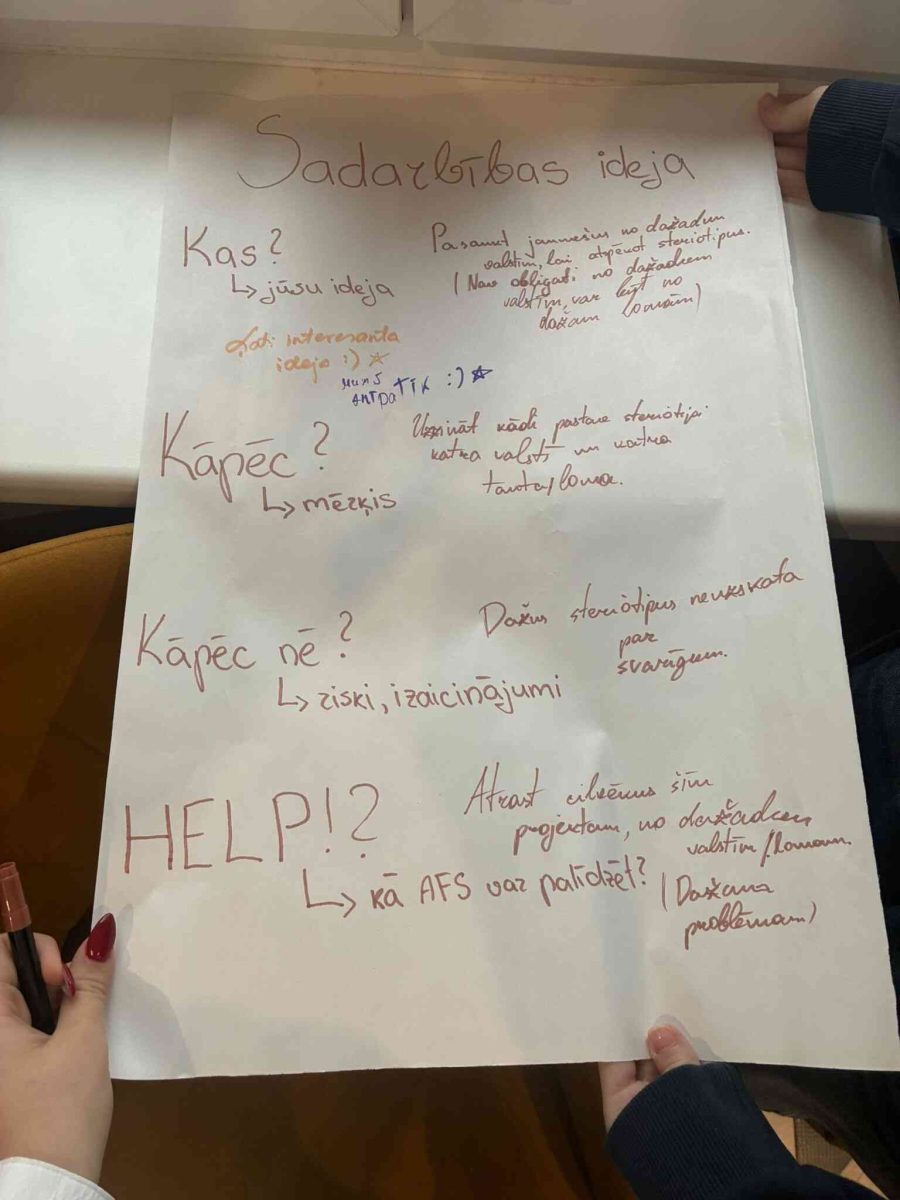 Sadarbības ideja
Kas?
↳ jūsu ideja
Pasamt jauniešus no dažadum
valstīm, lai atspēkot steriotipus.
(Nav obligati no dažadiem
valstīm, var būt no
dažam lomām)
Ļoti interesanta
ideja :) ☆
mums
patīk :) ☆
Kāpēc?
↳ mērķis
Uzzināt kādi pastāv steriotipi
katra valstī un katra
tauta/loma.
Kāpēc nē?
↳ riski, izaicinājumi
Dažus steriōtipus neuzskata
par
svarīgum.
HELP!?
↳ kā AFS var palīdzēt?
Atrast cilvēkus šīm
projektam, no dažādiem
valstīm/lomam.
(Dažama
problēmam)